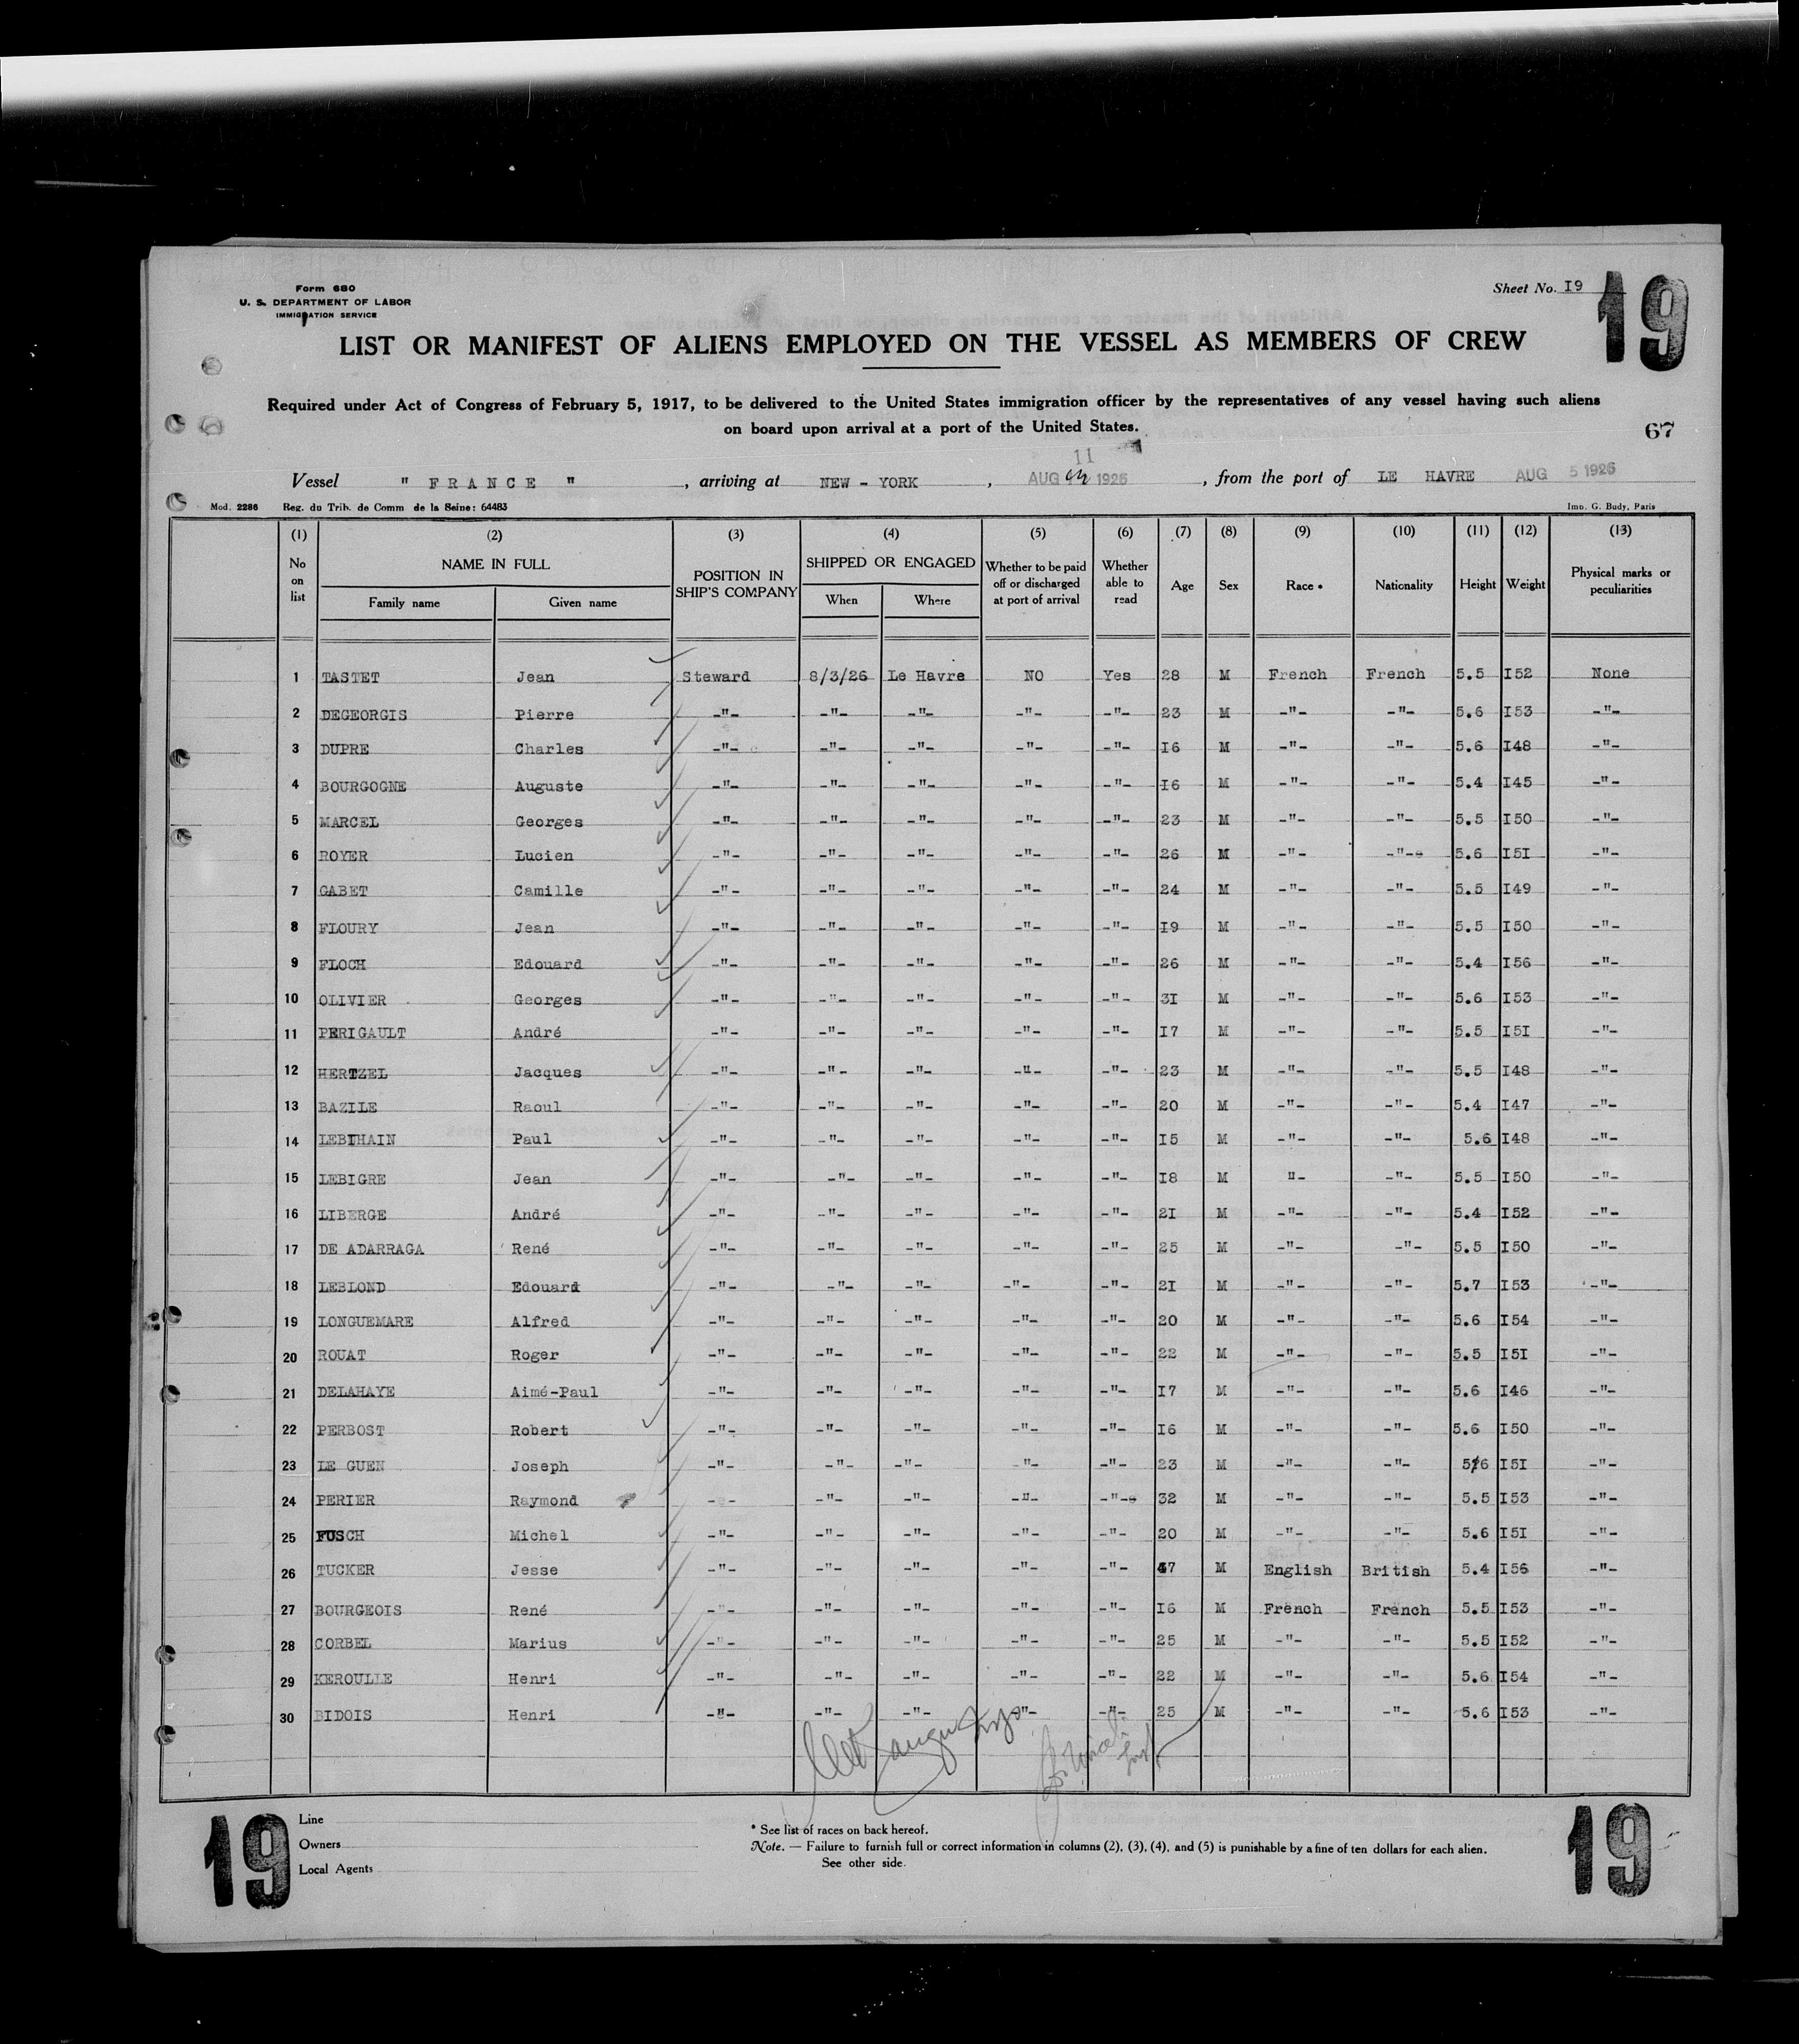 Form 680
U. S. DEPARTMENT OF LABOR
IMMIGRATION SERVICE
Sheet No. I9
19
LIST OR MANIFEST OF ALIENS EMPLOYED ON THE VESSEL AS MEMBERS OF CREW
Required under Act of Congress of February 5, 1917, to be delivered to the United States immigration officer by the representatives of any vessel having such aliens
on board upon arrival at a port of the United States.
67
11
Vessel " FRANCE " , arriving at NEW - YORK , AUG 1926 , from the port of LE HAVRE AUG 5 1926
Mod. 2286 Reg. du Trib. de Comm de la Seine: 64483 Imp. G. Budy, Paris
(1) (2) (3) (4) (5) (6) (7) (8) (9) (10) (11) (12) (13)
No on list NAME IN FULL Family name Given name POSITION IN SHIP'S COMPANY SHIPPED OR ENGAGED When Where Whether to be paid off or discharged at port of arrival Whether able to read Age Sex Race * Nationality Height Weight Physical marks or peculiarities
1 TASTET Jean Steward 8/3/26 Le Havre NO Yes 28 M French French 5.5 I52 None
2 DEGEORGIS Pierre -"- -"- -"- -"- -"- 23 M -"- -"- 5.6 I53 -"-
3 DUPRE Charles -"- -"- -"- -"- -"- I6 M -"- -"- 5.6 I48 -"-
4 BOURGOGNE Auguste -"- -"- -"- -"- -"- I6 M -"- -"- 5.4 I45 -"-
5 MARCEL Georges -"- -"- -"- -"- -"- 23 M -"- -"- 5.5 I50 -"-
6 ROYER Lucien -"- -"- -"- -"- -"- 26 M -"- -"- 5.6 I5I -"-
7 GABET Camille -"- -"- -"- -"- -"- 24 M -"- -"- 5.5 I49 -"-
8 FLOURY Jean -"- -"- -"- -"- -"- I9 M -"- -"- 5.5 I50 -"-
9 FLOCH Edouard -"- -"- -"- -"- -"- 26 M -"- -"- 5.4 I56 -"-
10 OLIVIER Georges -"- -"- -"- -"- -"- 3I M -"- -"- 5.6 I53 -"-
11 PERIGAULT André -"- -"- -"- -"- -"- I7 M -"- -"- 5.5 I5I -"-
12 HERTZEL Jacques -"- -"- -"- -"- -"- 23 M -"- -"- 5.5 I48 -"-
13 BAZILE Raoul -"- -"- -"- -"- -"- 20 M -"- -"- 5.4 I47 -"-
14 LEBIHAIN Paul -"- -"- -"- -"- -"- I5 M -"- -"- 5.6 I48 -"-
15 LEBIGRE Jean -"- -"- -"- -"- -"- I8 M "- -"- 5.5 I50 -"-
16 LIBERGE André -"- -"- -"- -"- -"- 2I M -"- -"- 5.4 I52 -"-
17 DE ADARRAGA René -"- -"- -"- -"- -"- 25 M -"- -"- 5.5 I50 -"-
18 LEBLOND Edouard -"- -"- -"- -"- -"- 2I M -"- -"- 5.7 I53 -"-
19 LONGUEMARE Alfred -"- -"- -"- -"- -"- 20 M -"- -"- 5.6 I54 -"-
20 ROUAT Roger -"- -"- -"- -"- -"- 22 M -"- -"- 5.5 I5I -"-
21 DELAHAYE Aimé-Paul -"- -"- -"- -"- -"- I7 M -"- -"- 5.6 I46 -"-
22 PERBOST Robert -"- -"- -"- -"- -"- I6 M -"- -"- 5.6 I50 -"-
23 LE GUEN Joseph -"- -"- -"- -"- -"- 23 M -"- -"- 5/6 I5I -"-
24 PERIER Raymond -"- -"- -"- -"- -"- 32 M -"- -"- 5.5 I53 -"-
25 FUSCH Michel -"- -"- -"- -"- -"- 20 M -"- -"- 5.6 I5I -"-
26 TUCKER Jesse -"- -"- -"- -"- -"- 47 M English British 5.4 I56 -"-
27 BOURGEOIS René -"- -"- -"- -"- -"- I6 M French French 5.5 I53 -"-
28 CORBEL Marius -"- -"- -"- -"- -"- 25 M -"- -"- 5.5 I52 -"-
29 KEROULLE Henri -"- -"- -"- -"- -"- 22 M -"- -"- 5.6 I54 -"-
30 BIDOIS Henri -"- -"- -"- -"- -"- 25 M -"- -"- 5.6 I53 -"-
19
Line
Owners
Local Agents
* See list of races on back hereof.
Note. — Failure to furnish full or correct information in columns (2), (3), (4), and (5) is punishable by a fine of ten dollars for each alien.
See other side.
19